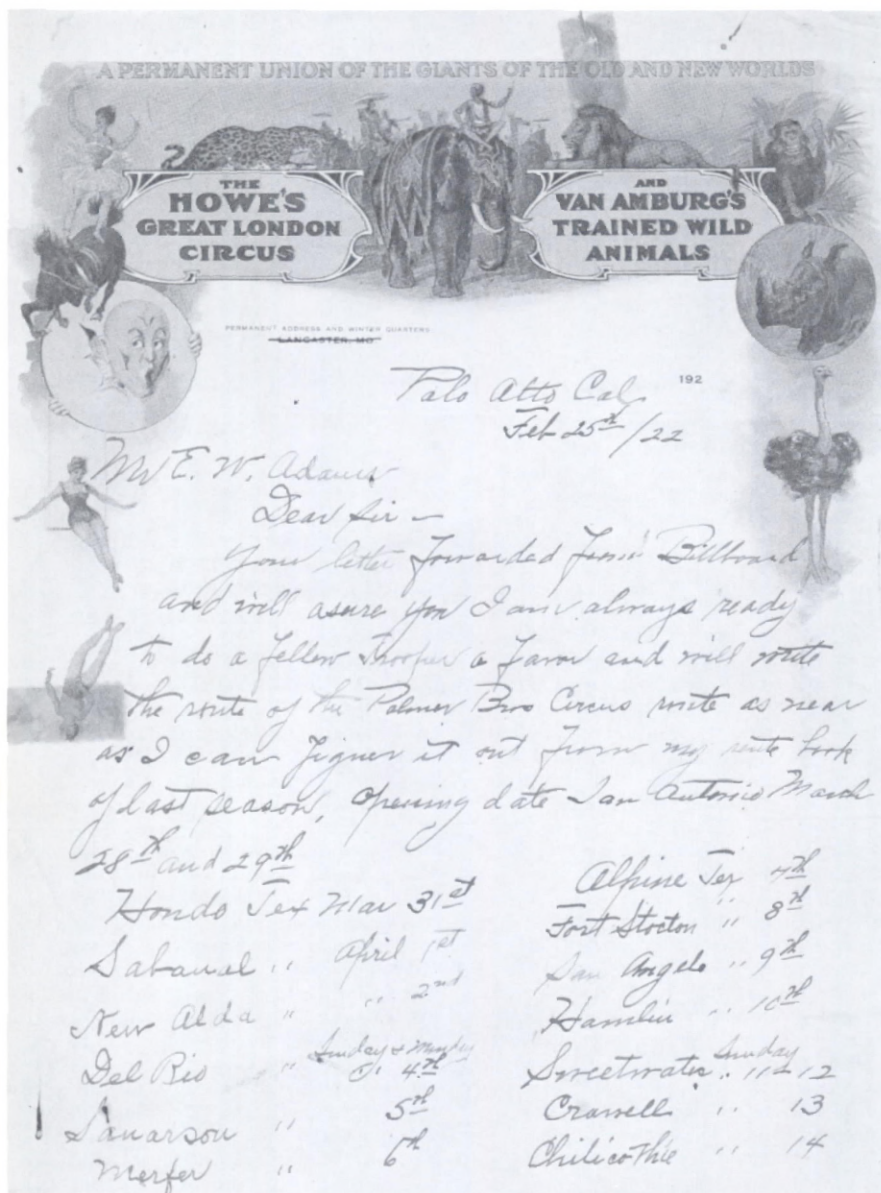 A PERMANENT UNION OF THE GIANTS OF THE OLD AND NEW WORLDS
THE
HOWE'S
GREAT LONDON
CIRCUS
AND
VAN AMBURG'S
TRAINED WILD
ANIMALS
PERMANENT ADDRESS AND WINTER QUARTERS
LANCASTER, MO.
192
Palo Alto Cal
Feb 25th/22
Mr E. W. Adams
Dear Sir —
Your letter forwarded from Billboard
and will asure you I am always ready
to do a fellow Trooper a favor and will write
the route of the Palmer Bros Circus route as near
as I can figuer it out from my route book
of last season, opening date San Antonio March
28th and 29th
Hondo Tex Mar 31st
Sabanal " April 1st
New Alda " " 2nd
Del Rio " Sunday & Monday " 4th
Sanarson " 5th
Merfer " 6th
Alpine Tex 7th
Fort Stocton " 8th
San Angelo " 9th
Hamlin " 10th
Sweetwater " Sunday 11-12
Crowell " 13
Chilicothie " 14